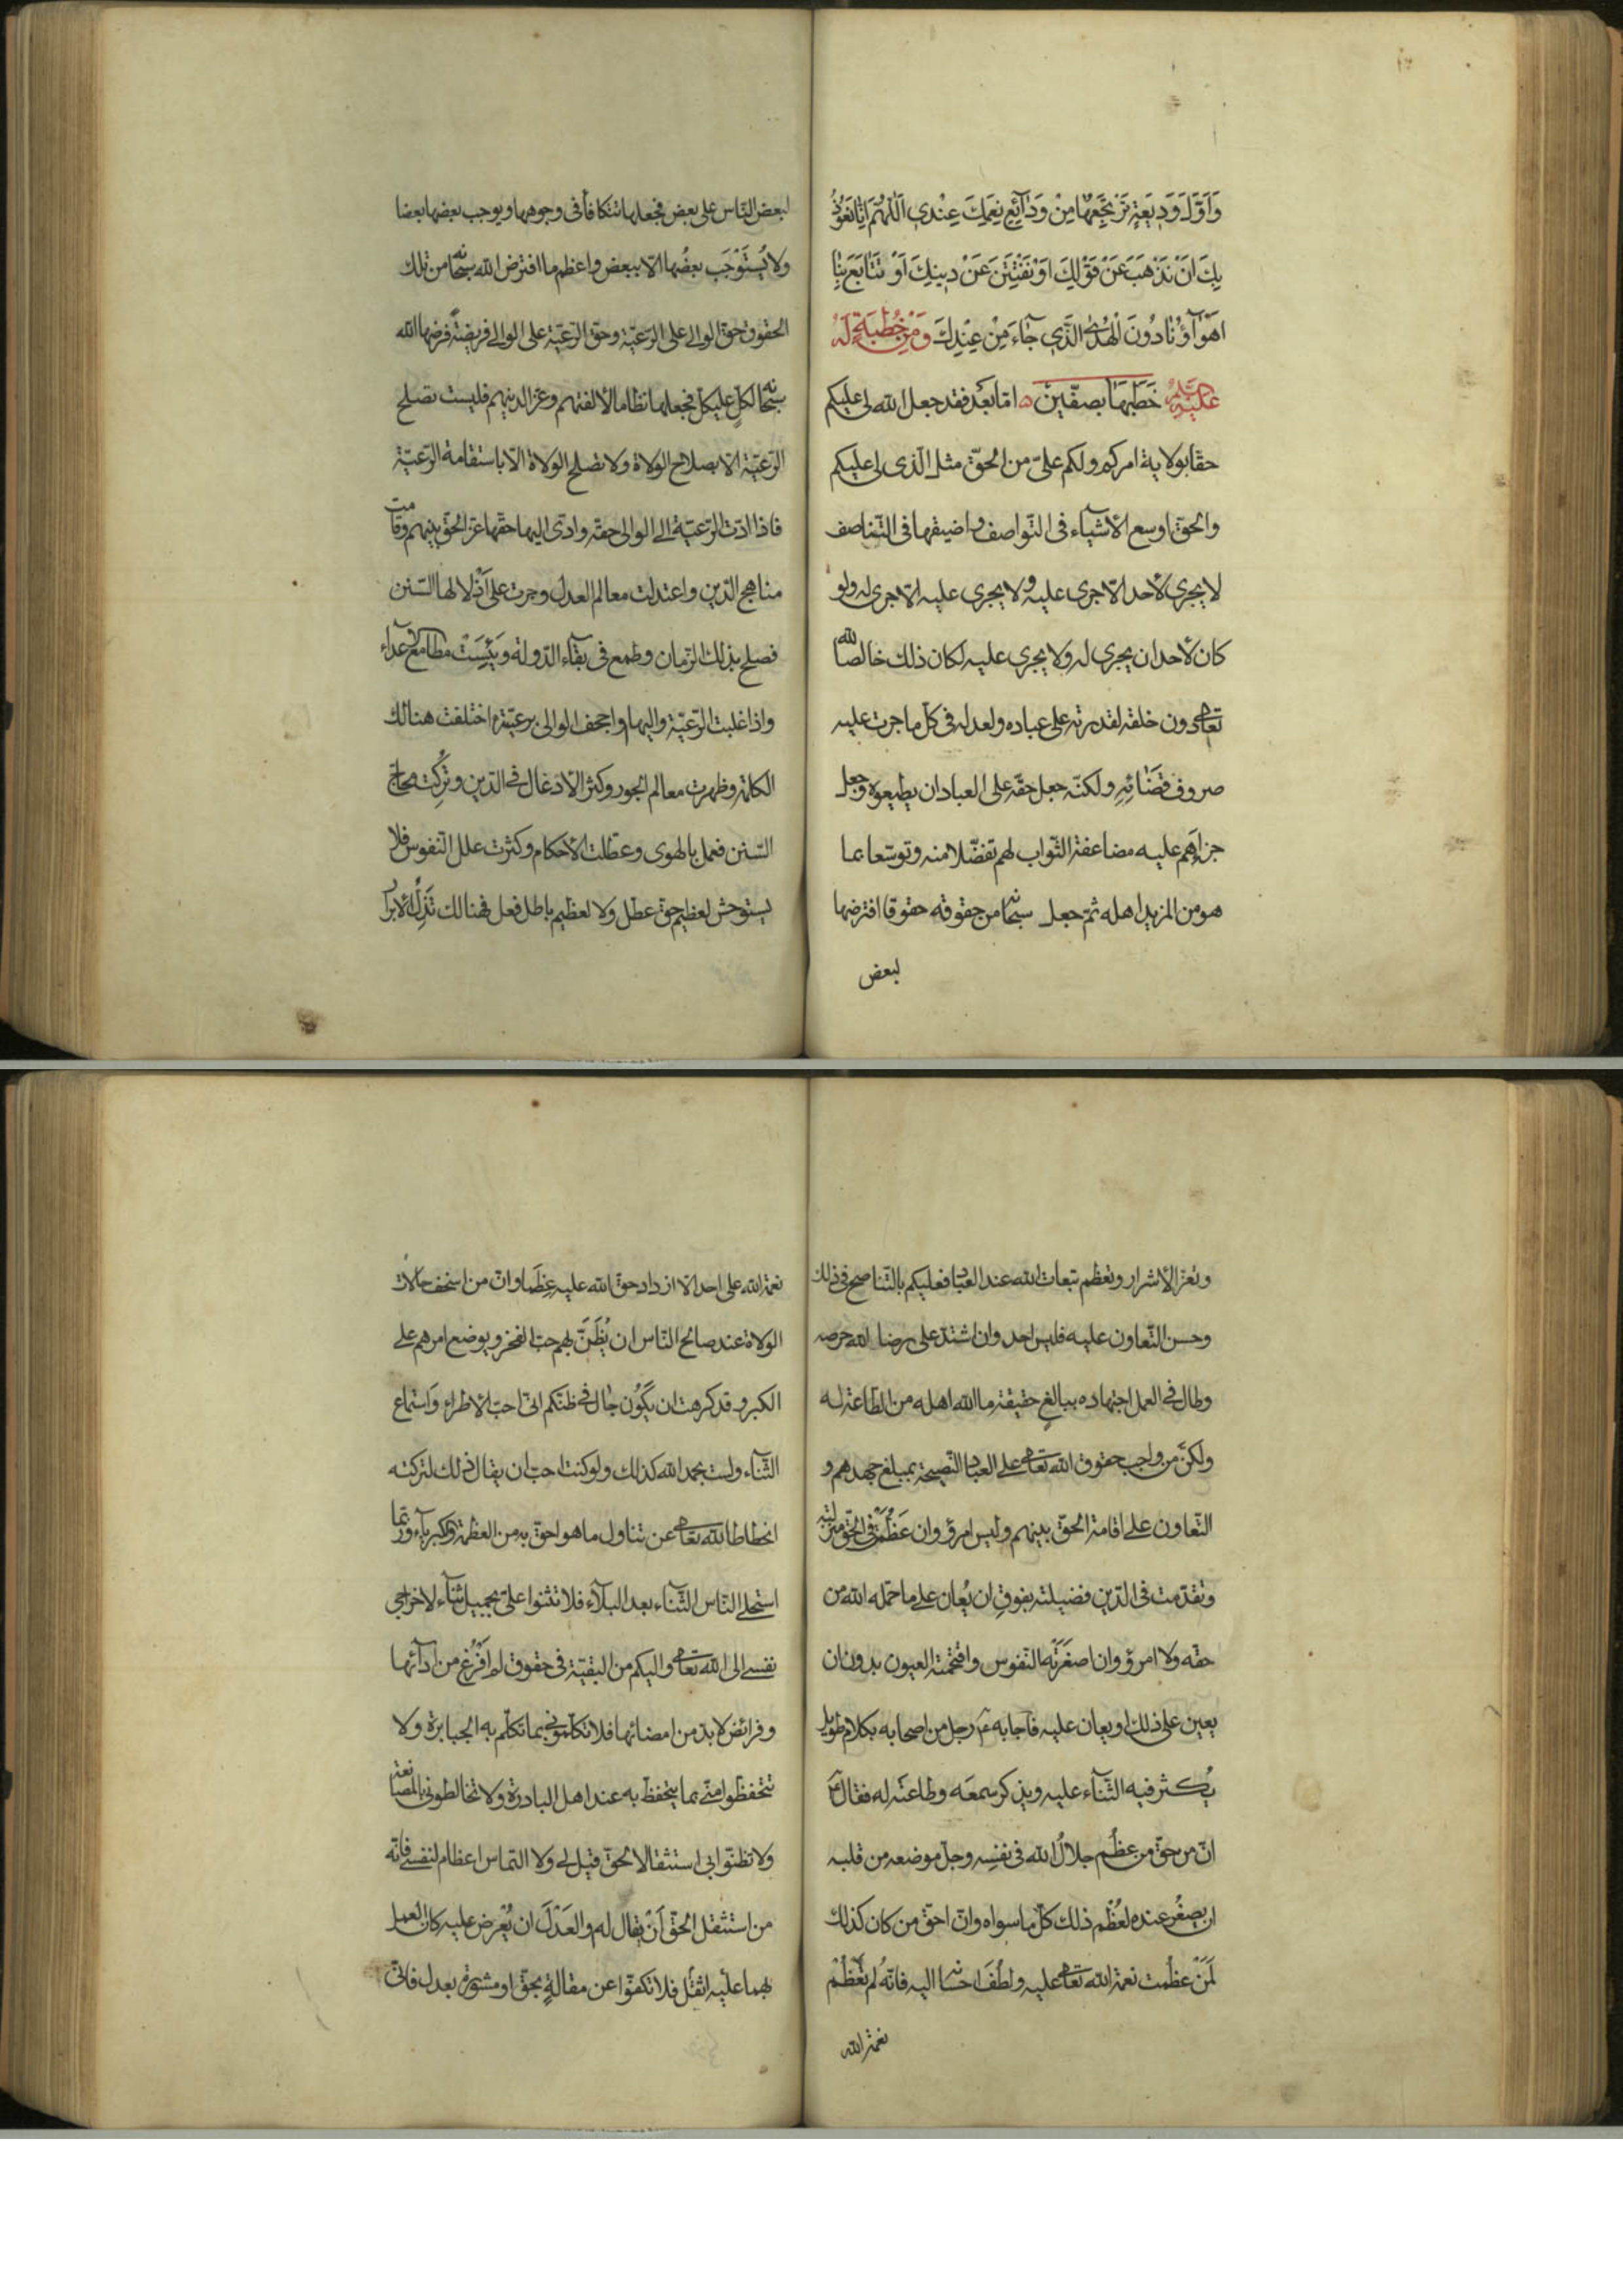 وَاَوَّلَ وَدِيعَةٍ تَرْتَجِعُهَا مِنْ وَدَآئِعِ نِعَمِكَ عِنْدِي اَللّٰهُمَّ اِنَّا نَعُوذُ
بِكَ اَنْ نَذْهَبَ عَنْ قَوْلِكَ اَوْ نَفْتَتِنَ عَنْ دِينِكَ اَوْ تَتَابَعَ بِنَا
اَهْوَآؤُنَا دُونَ الْهُدَى الَّذِي جَآءَ مِنْ عِنْدِكَ وَمِنْ خُطْبَةٍ لَهُ
عَلَيْهِ السَّلَمُ خَطَبَهَا بِصِفّينَ امّا بَعْدُ فقد جعل الله لى عليكم
حقّا بولاية امركم ولكم علىّ من الحقّ مثل الّذى لى عليكم
والحقّ اوسع الأشيآء فى التّواصف واضيقها فى التّناصف
لا يجرى لأحد الّا جرى عليه ولا يجرى عليه الّا جرى له ولو
كان لأحد ان يجرى له ولا يجرى عليه لكان ذلك خالصًا لله
تعالى دون خلقه لقدرته على عباده ولعدله فى كلّ ما جرت عليه
صروف قَضَائِهِ ولكنّه جعل حقّه على العباد ان يطيعوه وجعل
جزاءهم عليه مضاعفة الثّواب لهم تفضّلا منه وتوسّعا بما
هو من المزيد اهله ثمّ جعل سبحانه من حقوقه حقوقا افترضها
لبعض
لبعض النّاس على بعض فجعلها تتكافأ فى وجوهها ويوجب بعضها بعضا
ولا يُسْتَوْجَب بعضُها الّا ببعض واعظم ما افترض الله سبحانه من تلك
الحقوق حقّ الوالى على الرّعيّة وحقّ الرّعيّة على الوالى فريضةً فرضها الله
سبحانه لكلٍّ على كلّ فجعلها نظاما لألفتهم وعزّا لدينهم فليست تصلح
الرّعيّة الّا بصلاح الولاة ولا تصلح الولاة الّا باستقامة الرّعيّة
فاذا ادّت الرّعيّة الى الوالى حقّه وادّى اليها حقّها عزّ الحقّ بينهم وقامت
مناهج الدّين واعتدلت معالم العدل وجرت على اَذْلالها السّنن
فصلح بذلك الزّمان وطمع فى بقآء الدّولة وَيَئِسَتْ مطامع الاعدآء
واذا غلبت الرّعيّة واليها واجحف الوالى برعيّته اختلفت هنالك
الكلمة وظهرت معالم الجور وكثر الأدغال فى الدّين وتُرِكَت محاجّ
السّنن فعمل بالهوى وعطّلت الأحكام وكثرت علل النّفوس فلا
يستوحش لعظيم حقّ عطّل ولا لعظيم باطل فعل فهنالك تَذِلُّ الأبرار
وتعزّ الأشرار وتعظم تبعات الله عند العباد فعليكم بالتّناصح فى ذلك
وحسن التّعاون عليه فليس احد وان اشتدّ على رضا الله حرصه
وطال فى العمل اجتهاده ببالغ حقيقة ما الله اهله من الطّاعة له
ولكنّ من واجب حقوق الله تعالى على العباد النّصيحة بمبلغ جهدهم و
التّعاون على اقامة الحقّ بينهم وليس امرؤ وان عَظُمَتْ فى الحقّ منزلته
وتقدّمت فى الدّين فضيلته بفوق ان يُعان على ما حمّله الله من
حقّه ولا امرؤ وان صغّرَتْه النّفوس واقتحمته العيون بدون ان
يعين على ذلك او يعان عليه فاجابه ع رجل من اصحابه بكلام طويل
يُكثر فيه الثّنآء عليه ويذكر سمعَه وطاعتَه له فقال ع
انّ من حقّ من عظُم جلالُ الله فى نفسِه وجلّ موضعه من قلبه
ان يصغُر عنده لعُظْم ذلك كلّ ما سواه وانّ احقّ من كان كذلك
لَمَنْ عظُمت نعمة الله تعالى عليه ولطُفَ احسانه اليه فانّه لم تَعْظُمْ
نعمة الله
نعمة الله على احد الّا ازداد حقّ الله عليه عِظَما وانّ من اسخف حالات
الولاة عند صالح النّاس ان يُظَنَّ بهم حبّ الفخر ويوضع امرهم على
الكبر وقد كرهت ان يَكُون جال فى ظنّكم انّى احبّ الاطراء وَاستماع
الثّنآء ولست بحمد الله كذلك ولو كنت احبّ ان يقال ذلك لتركته
انحطاطا لله تعالى عن تناول ما هو احقّ به من العظمة والكبريآء وربّما
استحلى النّاس الثّنآء بعد البلآء فلا تثنوا علىّ بجميل ثنآء لاخراجى
نفسى الى الله تعالى واليكم من البقيّة فى حقوق لم اَفْرُغْ من ادآئها
وفرائض لا بدّ من امضائها فلا تكلّمونى بما تكلّم به الجبابرة ولا
تتحفّظوا منّى بما يتحفّظ به عند اهل البادرة ولا تخالطونى بالمصانعة
ولا تظنّوا بى استثقالا لحقّ قيل لى ولا التماس اعظام لنفسى فانّه
من استثقل الحقّ اَنْ يقال له والعَدْلَ ان يُعْرض عليه كان العمل
بهما عليه اثقَل فلا تكفّوا عن مقالةٍ بحقّ او مشورة بعدل فانّى